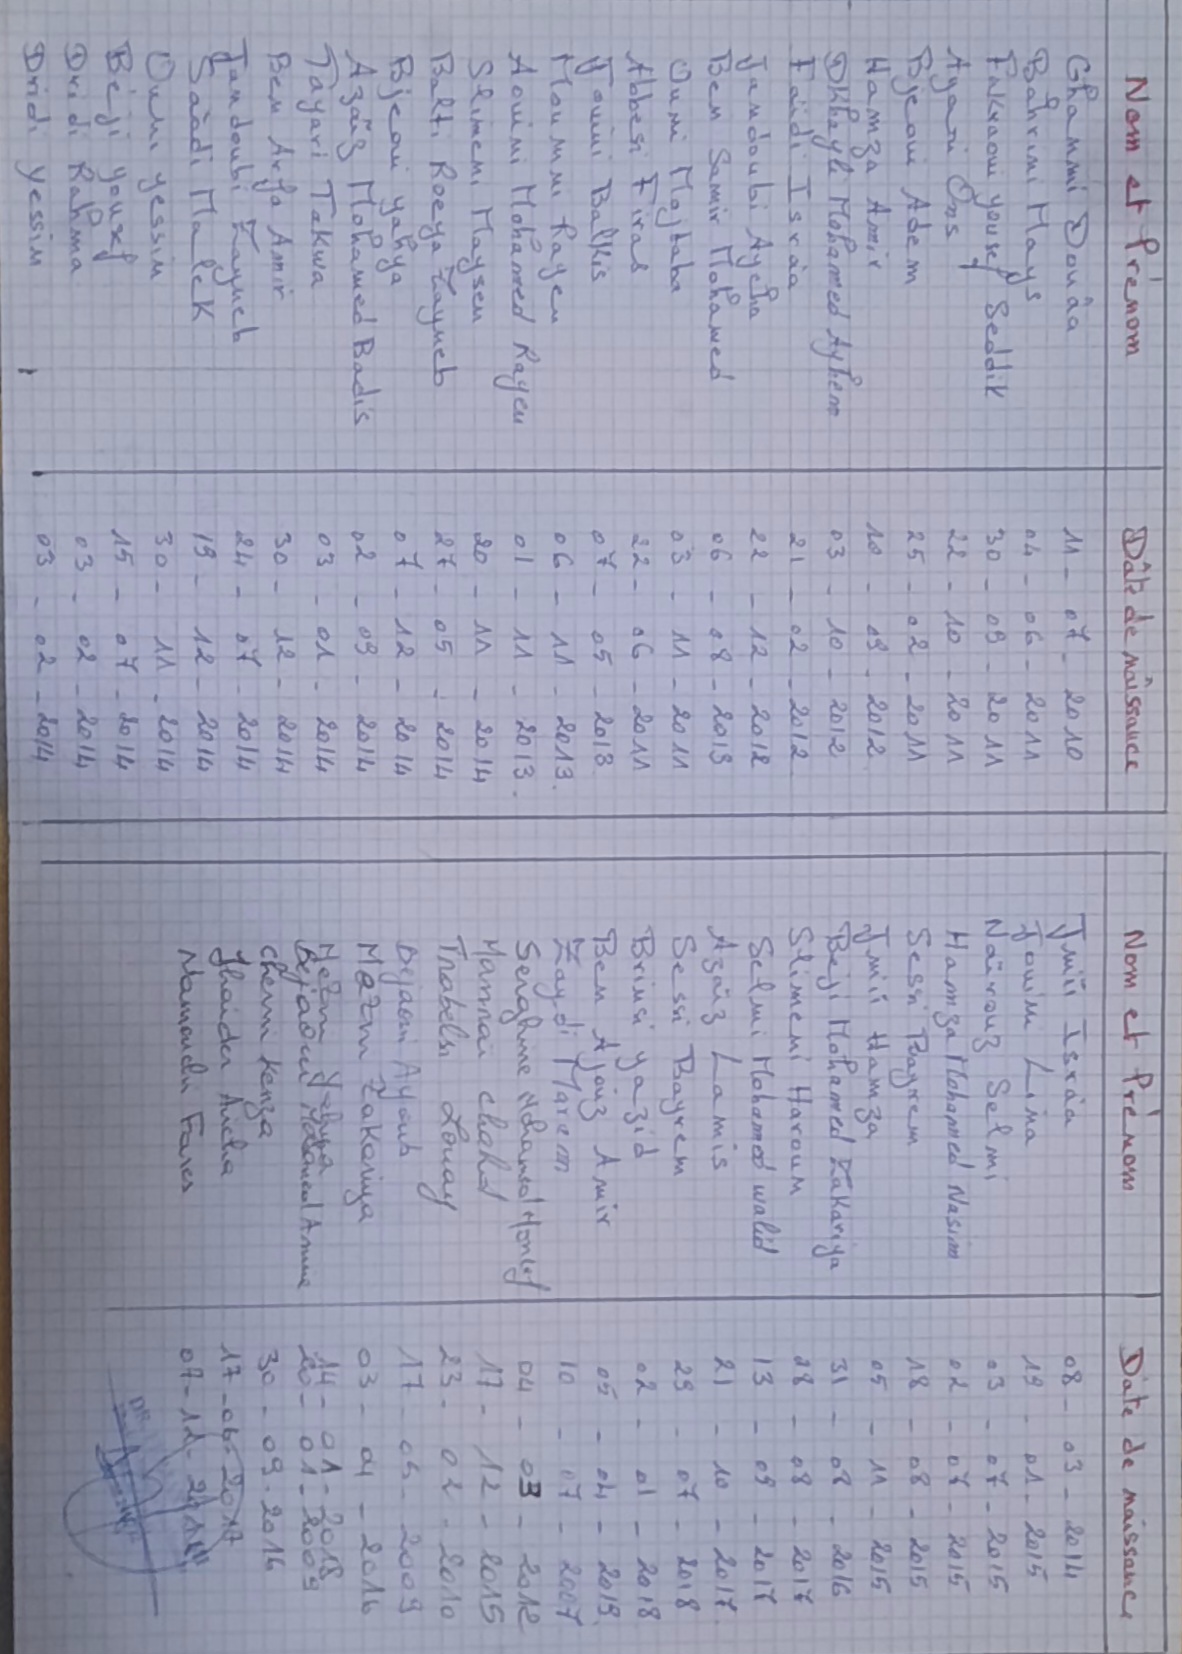 Nom et Prénom | Dâte de nâissance
Ghammi Douâa | 11 - 07 - 2010
Bahrini Mays | 04 - 06 - 2011
Fakraoui yousef Seddik | 30 - 09 - 2011
Ayari Ons | 22 - 10 - 2011
Bjeoui Adem | 25 - 02 - 2011
Hamza Amir | 10 - 09 - 2012
Dkhayli Mohamed Ayhem | 03 - 10 - 2012
Faidi Israa | 21 - 02 - 2012
Jandoubi Aycha | 22 - 12 - 2012
Ben Samir Mohamed | 06 - 08 - 2013
Ouni Mojtaba | 03 - 11 - 2011
Abbesi Firas | 22 - 06 - 2011
Jouini Balkis | 07 - 05 - 2013
Moumni Rayen | 06 - 11 - 2013.
Aouini Mohamed Rayen | 01 - 11 - 2013.
Slimeni Maysem | 20 - 11 - 2014
Balti Roeya Zayneb | 27 - 05 - 2014
Bjeoui yahya | 07 - 12 - 2014
Azaiz Mohamed Badis | 02 - 09 - 2014
Tayari Takwa | 03 - 01 - 2014
Ben Arfa Amir | 30 - 12 - 2014
Jandoubi Zayneb | 24 - 07 - 2014
Saadi Malek | 19 - 12 - 2014
Ouni yessin | 30 - 11 - 2014
Béji yousf | 15 - 07 - 2014
Dridi Rahma | 03 - 02 - 2014
Dridi yessin | 03 - 02 - 2014
Nom et Prénom | Date de naissance
Jmii Israa | 08 - 03 - 2014
Jouini Lina | 19 - 01 - 2015
Nairouz Selmi | 03 - 07 - 2015
Hamza Mohamed Nasim | 02 - 07 - 2015
Sessi Bayrem | 18 - 08 - 2015
Jmii Hamza | 05 - 11 - 2015
Beji Mohamed Zakariya | 31 - 08 - 2016
Slimeni Haroun | 28 - 08 - 2017
Selmi Mohamed walid | 13 - 09 - 2017
Azaiz Lamis | 21 - 10 - 2017
Sessi Bayrem | 29 - 07 - 2018
Brinsi yazid | 02 - 01 - 2018
Ben Ajouz Amir | 05 - 04 - 2019
Zaydi Marem | 10 - 07 - 2007
Serghine Mohamed Monlef | 04 - 03 - 2012
Mannai chahd | 17 - 12 - 2015
Trabelsi Louay | 23 - 02 - 2010
Bejaoui Ayoub | 17 - 05 - 2009
Mezni Zakariya | 03 - 04 - 2016
Mezni Yahya | 14 - 01 - 2018
Bejaoui Mohamed Amine | 20 - 01 - 2009
cherni Kenza | 30 - 09 - 2016
Aicha | 17 - 06 - 2017
Fares